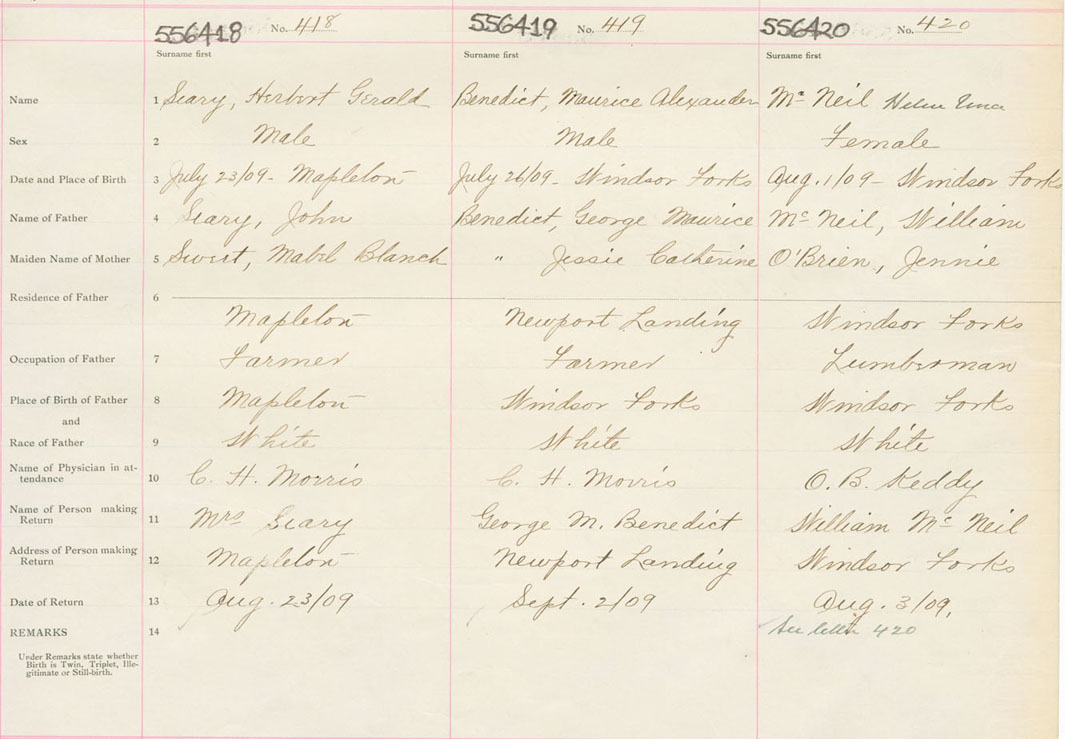 556418 No. 418 556419 No. 419 556420 No. 420
Surname first Surname first Surname first
Name 1 Seary, Herbert Gerald Benedict, Maurice Alexander Mc Neil Helen
Sex 2 Male Male Female
Date and Place of Birth 3 July 23/09 - Mapleton July 26/09 - Windsor Forks Aug. 1/09 - Windsor Forks
Name of Father 4 Seary, John Benedict, George Maurice Mc Neil, William
Maiden Name of Mother 5 Sweet, Mabel Blanch " Jessie Catherine O'Brien, Jennie
Residence of Father 6
Mapleton Newport Landing Windsor Forks
Occupation of Father 7 Farmer Farmer Lumberman
Place of Birth of Father 8 Mapleton Windsor Forks Windsor Forks
and
Race of Father 9 White White White
Name of Physician in at-
tendance 10 C. H. Morris C. H. Morris O. B. Keddy
Name of Person making
Return 11 Mrs Seary George M. Benedict William Mc Neil
Address of Person making
Return 12 Mapleton Newport Landing Windsor Forks
Date of Return 13 Aug. 23/09 Sept. 2/09 Aug. 3/09,
REMARKS 14 See letter 420
Under Remarks state whether
Birth is Twin, Triplet, Ille-
gitimate or Still-birth.